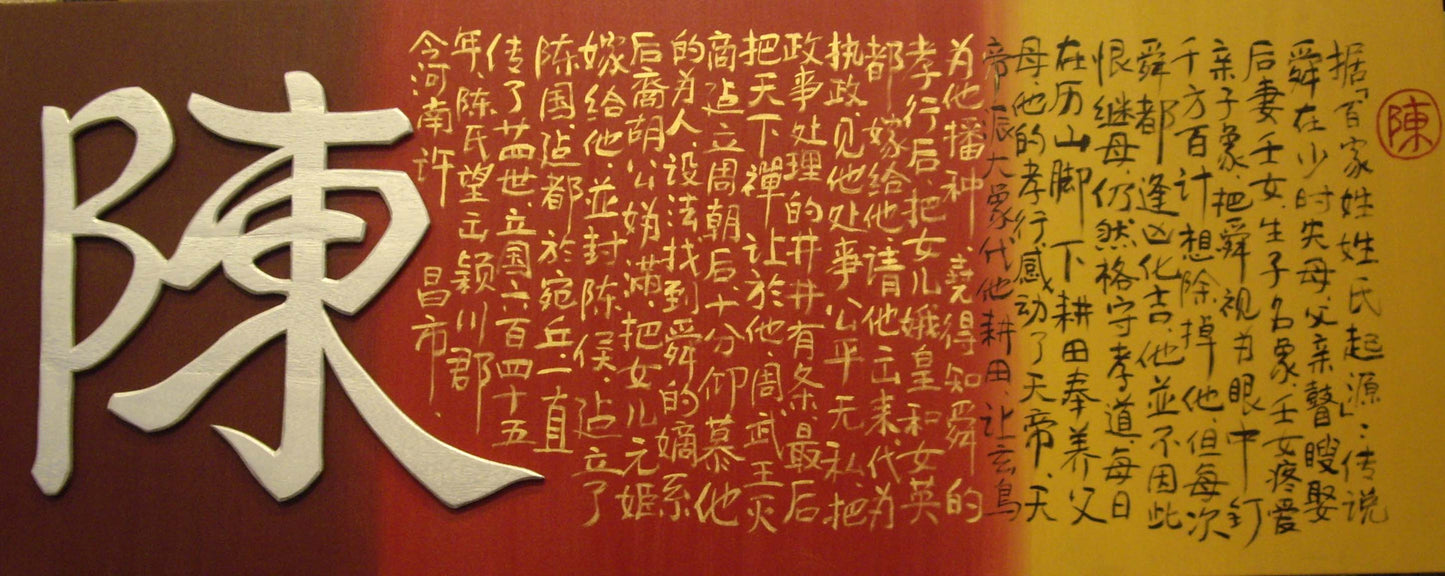 陳
据「百家姓姓氏起源」、传说
舜在少时失母、父亲瞽瞍娶
后妻壬女、生子名象、壬女疼爱
亲子象、把舜视为眼中钉
千方百计想除掉他、但每次
舜都逢凶化吉、他並不因此
恨继母、仍然格守孝道、每日
在历山脚下耕田奉养父
母他的孝行感动了天帝、天
帝派大象代他耕田、让玄鳥
为他播种、堯得知舜的
孝行后、把女儿娥皇和女英
都嫁给他、请他出来、代为
执政、见他处事公平无私、把
政事处理的井井有条、最后
把天下禪让於他、周武王灭
商迠立周朝后、十分仰慕他
的为人、设法找到舜的嫡系
后裔胡公媯满、把女儿元姬
嫁给他並封陈侯、迠立了
陈国迠都於宛丘、一直
传了四世、立国一百四十五
年、陈氏望出颖川郡
今河南许昌市、
陳